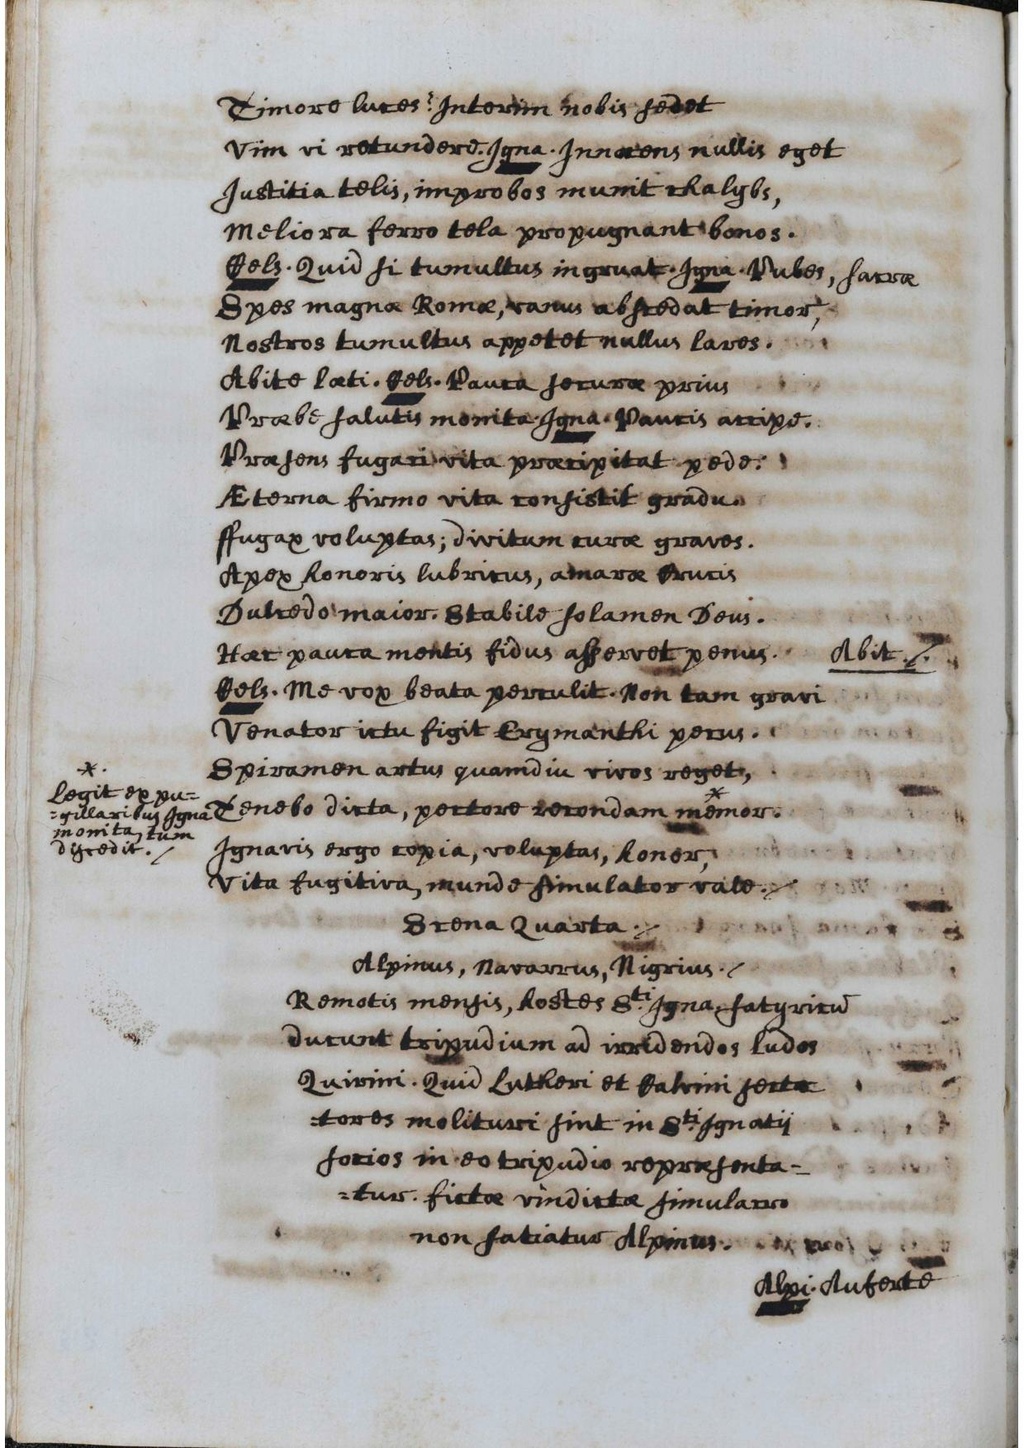 Timore luces? Interim nobis sedet
Vim vi retundere. Igna. Innocens nullis eget
Justitia telis, improbos munit chalybs,
Meliora ferro tela propugnant bonos.
Cels. Quid si tumultus ingruat. Igna. Pubes, sacræ
Spes magna Romæ, vanus abscedat timor,
Nostros tumultus appetet nullus lares.
Abite læti. Cels. Pauca securæ prius
Præbe salutis monita. Igna. Paucis accipe.
Præsens fugaci vita præcipitat pede.
Æterna firmo vita consistit gradu.
ffugax voluptas; divitum curæ graves.
Apex honoris lubricus, amaræ Crucis
Dulcedo maior. Stabile solamen Deus.
Hæc pauca mentis fidus asservet penus. Abit./.
Cels. Me vox beata perculit. Non tam gravi
Venator ictu figit Erymanthi pecus.
Spiramen artus quamdiu vivos reget,
Tenebo dicta, pectore recondam memor.*
*.
Legit ex pu=
=gillaribus Igna
monita, tum
discedit./
Ignavis ergo copia, voluptas, honor,
Vita fugitiva, munde simulator vale./
Scena Quarta./
Alpinus, Navarrus, Nigrius./
Remotis mensis, hostes Sti. Igna. satyricū
ducunt tripudium ad irridendos ludos
Quirini. Quid Lutheri et Calvini secta
=tores molituri sint in Sti. Ignatij
socios in eo tripudio repræsenta=
=tur. fictæ vindictæ simulacro
non satiatur Alpinus.
Alpi. Auferte